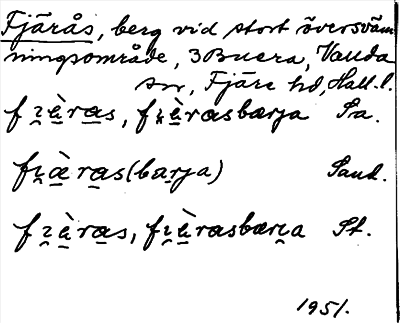 Fjärås, berg vid stort översväm
ningsområde, 3 Buera, Vanda
sn, Fjäre hd, Hall. l.
fi̯à̱ra̱s, fi̯à̱rasbærja Sa.
fi̯à̱ra̱s(ba̱rja) Sand.
fi̯à̱ra̱s, fi̯à̱rasbæri̯a St.
1951.